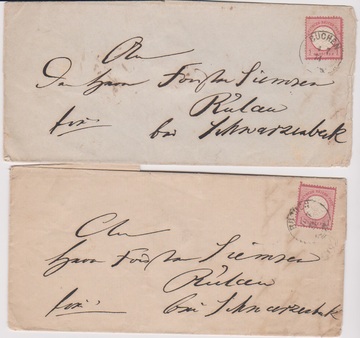 BUCHEN
An
den Herrn Förster Siemsen
Rülau
frei. bei Schwarzenbeck
An
Herrn Förster Siemsen
Rülau
frei. bei Schwarzenbeck